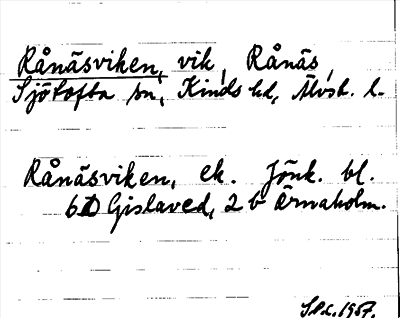 Rånäsviken, vik, Rånäs,
Sjötofta sn, Kinds hd, Älvsb. l.
Rånäsviken, ek. Jönk. bl.
6 D Gislaved, 2 b Ärnaholm.
1957.